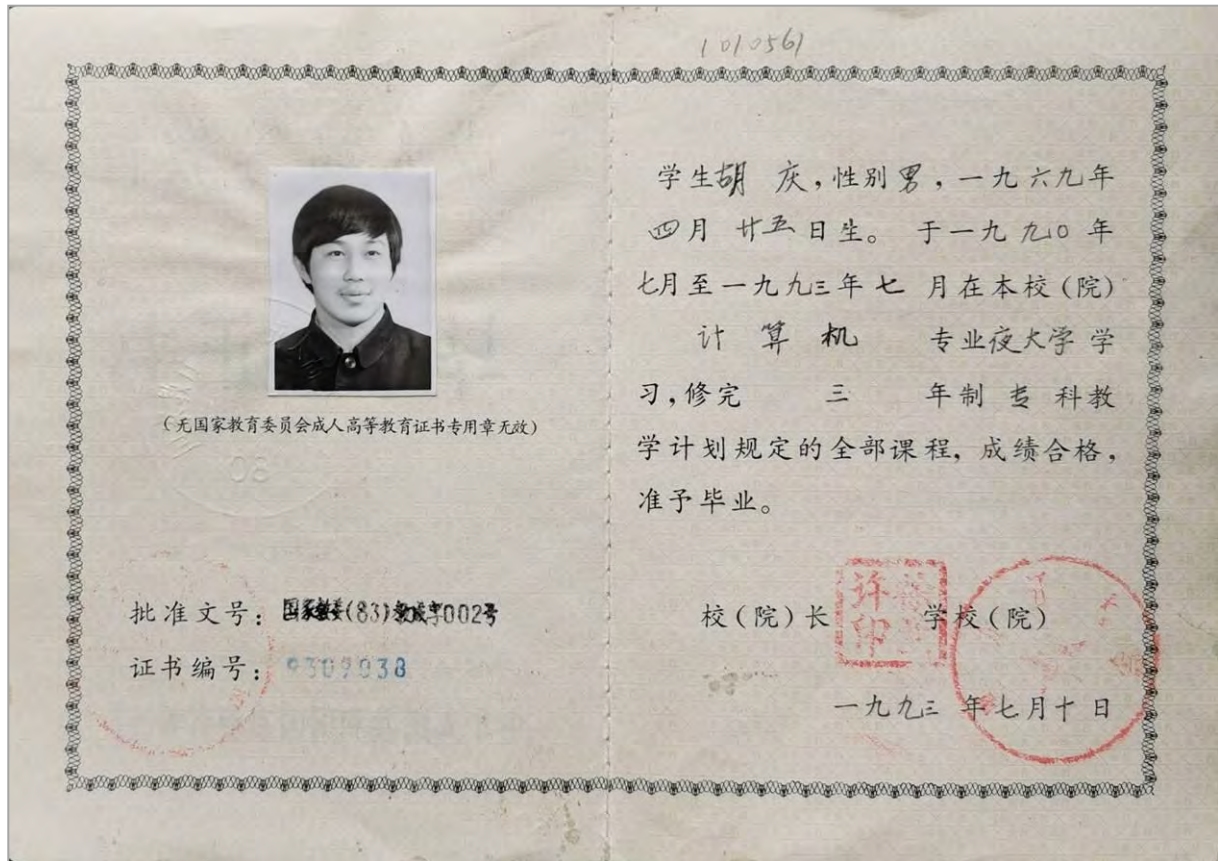 1010561
(无国家教育委员会成人高等教育证书专用章无效)
批准文号：国家教委(83)教成字002号
证书编号：9309038
学生胡 庆，性别男，一九六九年
四月 廿五日生。 于一九九〇年
七月至一九九三年七 月在本校(院)
计 算 机 专业夜大学 学
习，修完 三 年制 专 科教
学计划规定的全部课程，成绩合格，
准予毕业。
校(院)长 学校(院)
许 印
一九九三 年七月十日